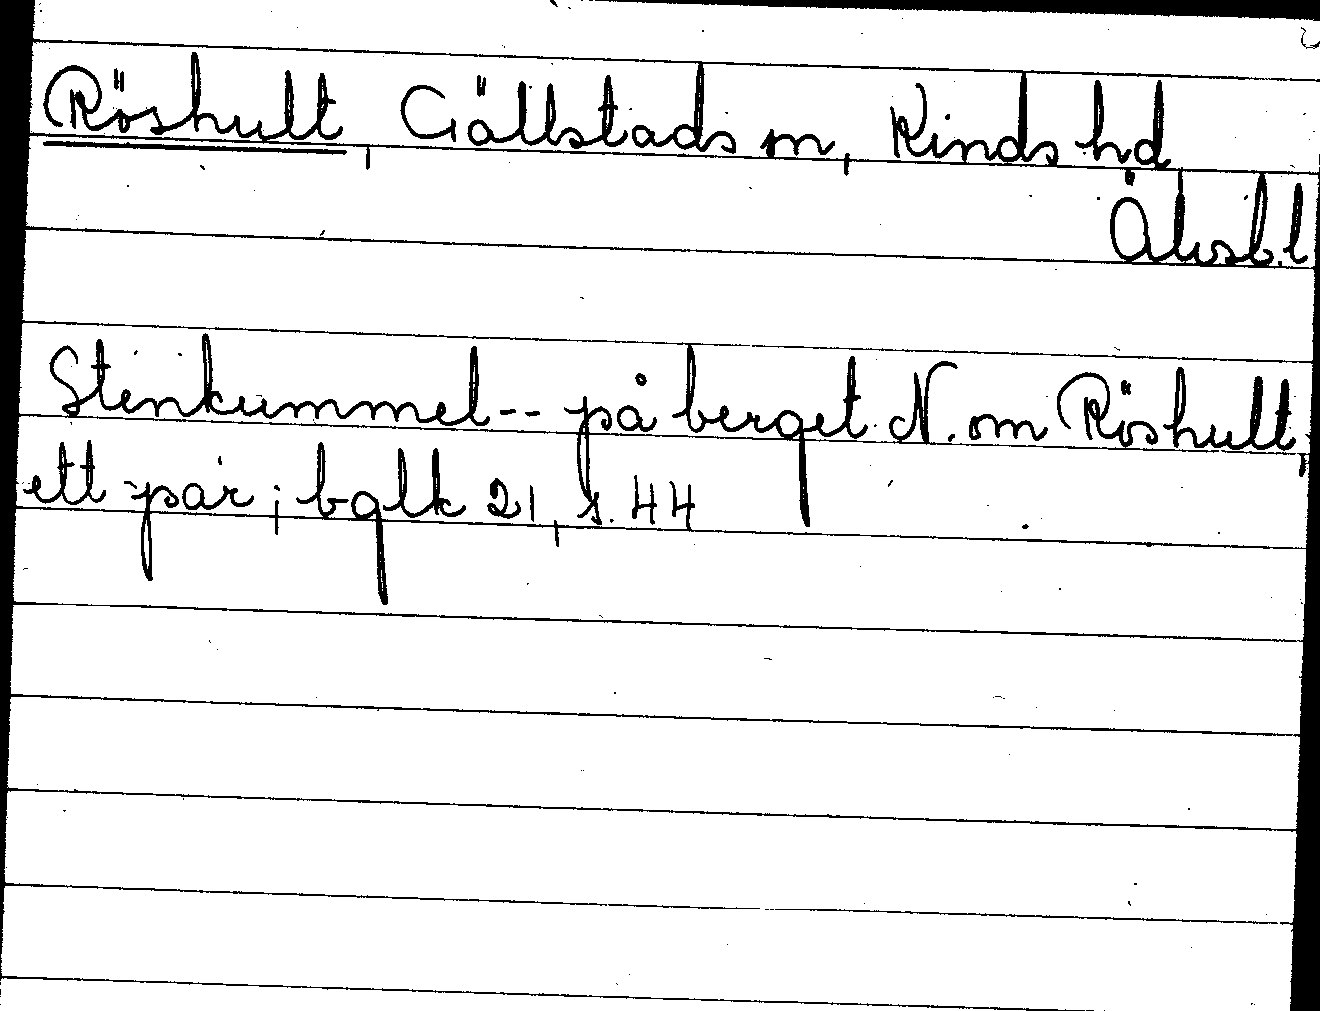 Röshult, Gällstads sn, Kinds hd
Älvsb.l
Stenkummel -- på berget N. om Röshult,
ett par; bglk 21, s. 44